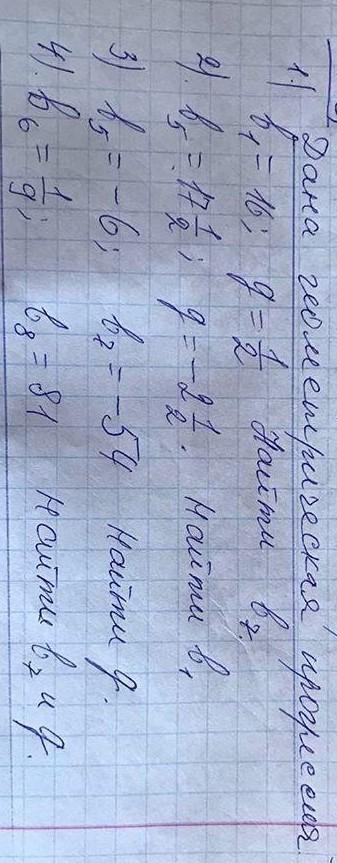 Дана геометрическая прогрессия.
1.) b₁ = 16; q = 1/2 Найти b₇.
2). b₅ = 17 1/2; q = -2 1/2. Найти b₁
3) b₅ = -6; b₇ = -54 Найти q.
4). b₆ = 1/9; b₈ = 81 Найти b₇ и q.